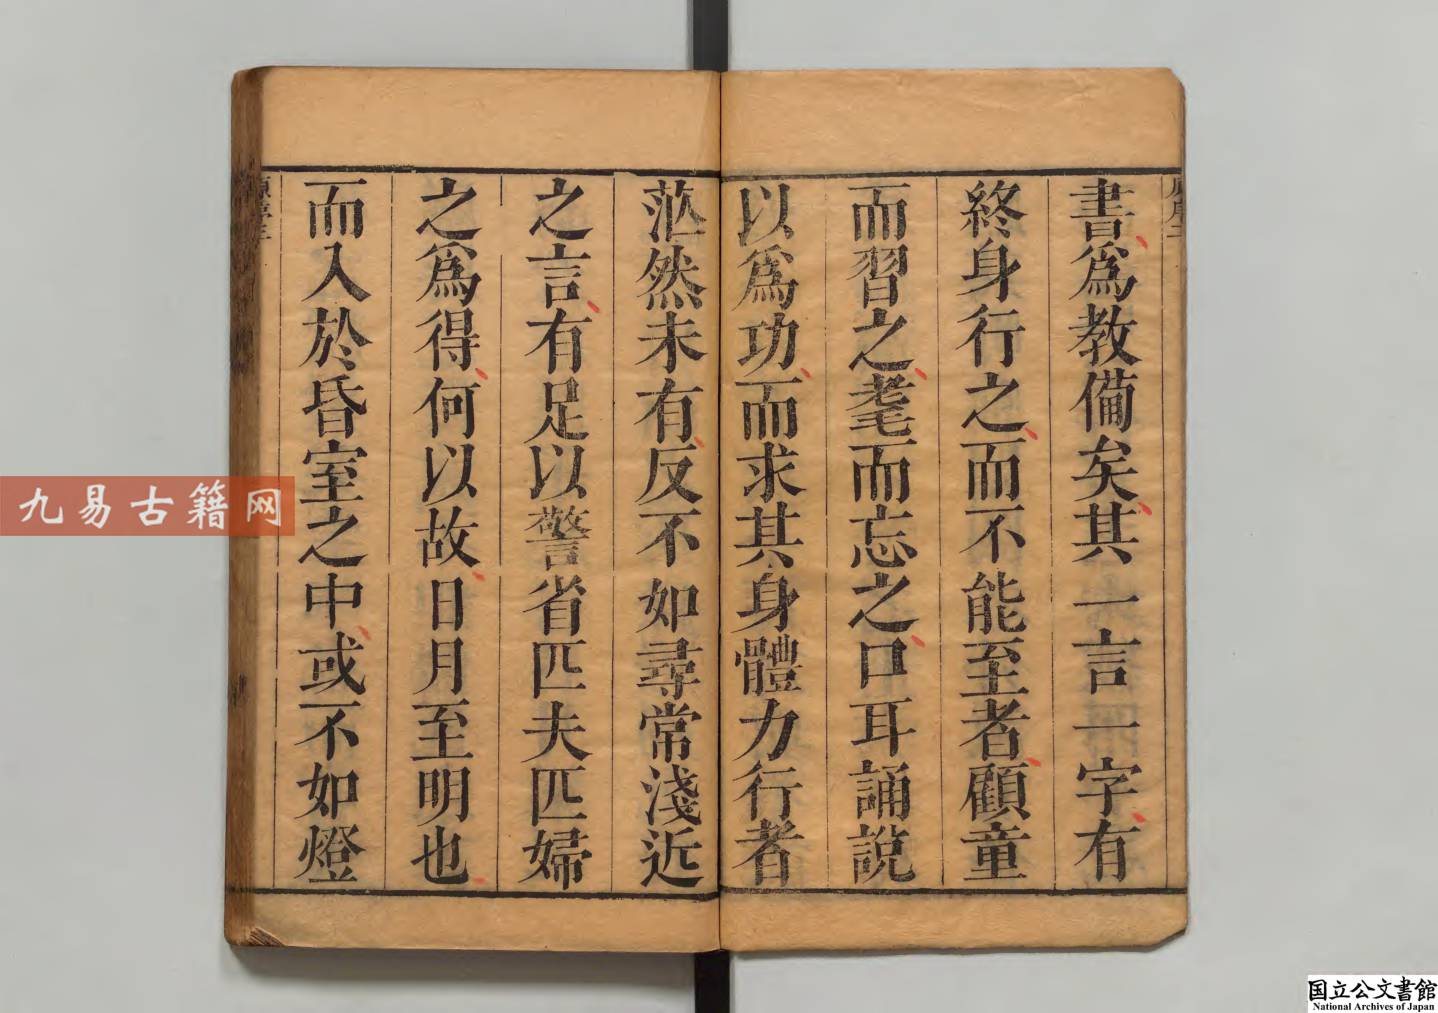 書爲教備矣其一言一字有
終身行之而不能至者顧童
而習之耄而忘之口耳誦說
以爲功而求其身體力行者
茫然未有反不如尋常淺近
之言有足以警省匹夫匹婦
之爲得何以故日月至明也
而入於昏室之中或不如燈
九易古籍网
国立公文書館
National Archives of Japan